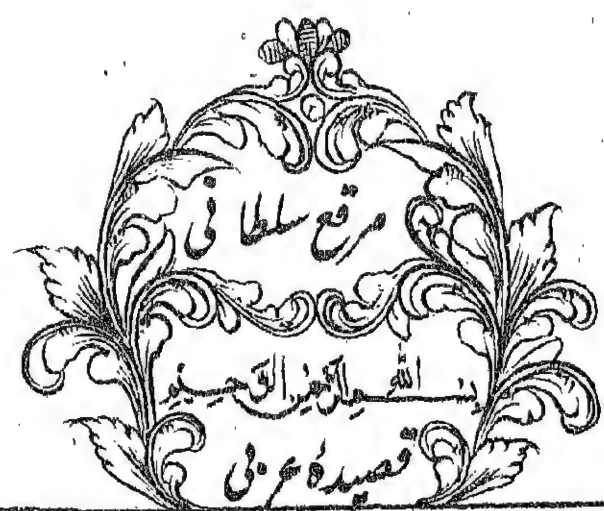 ۲
مرقع سلطانی
بسم الله الرحمن الرحیم
قصیدهٔ عربی